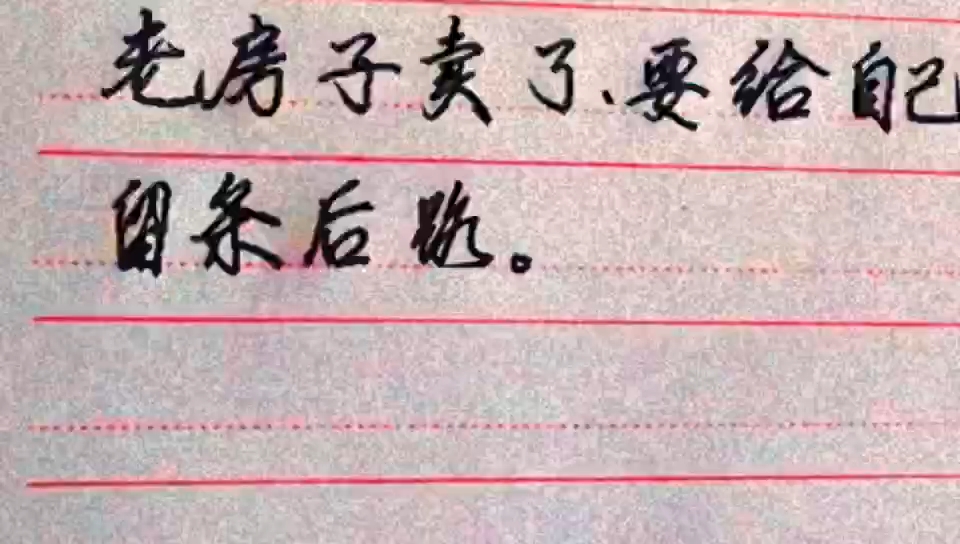 老房子卖了、要给自己
留条后路。